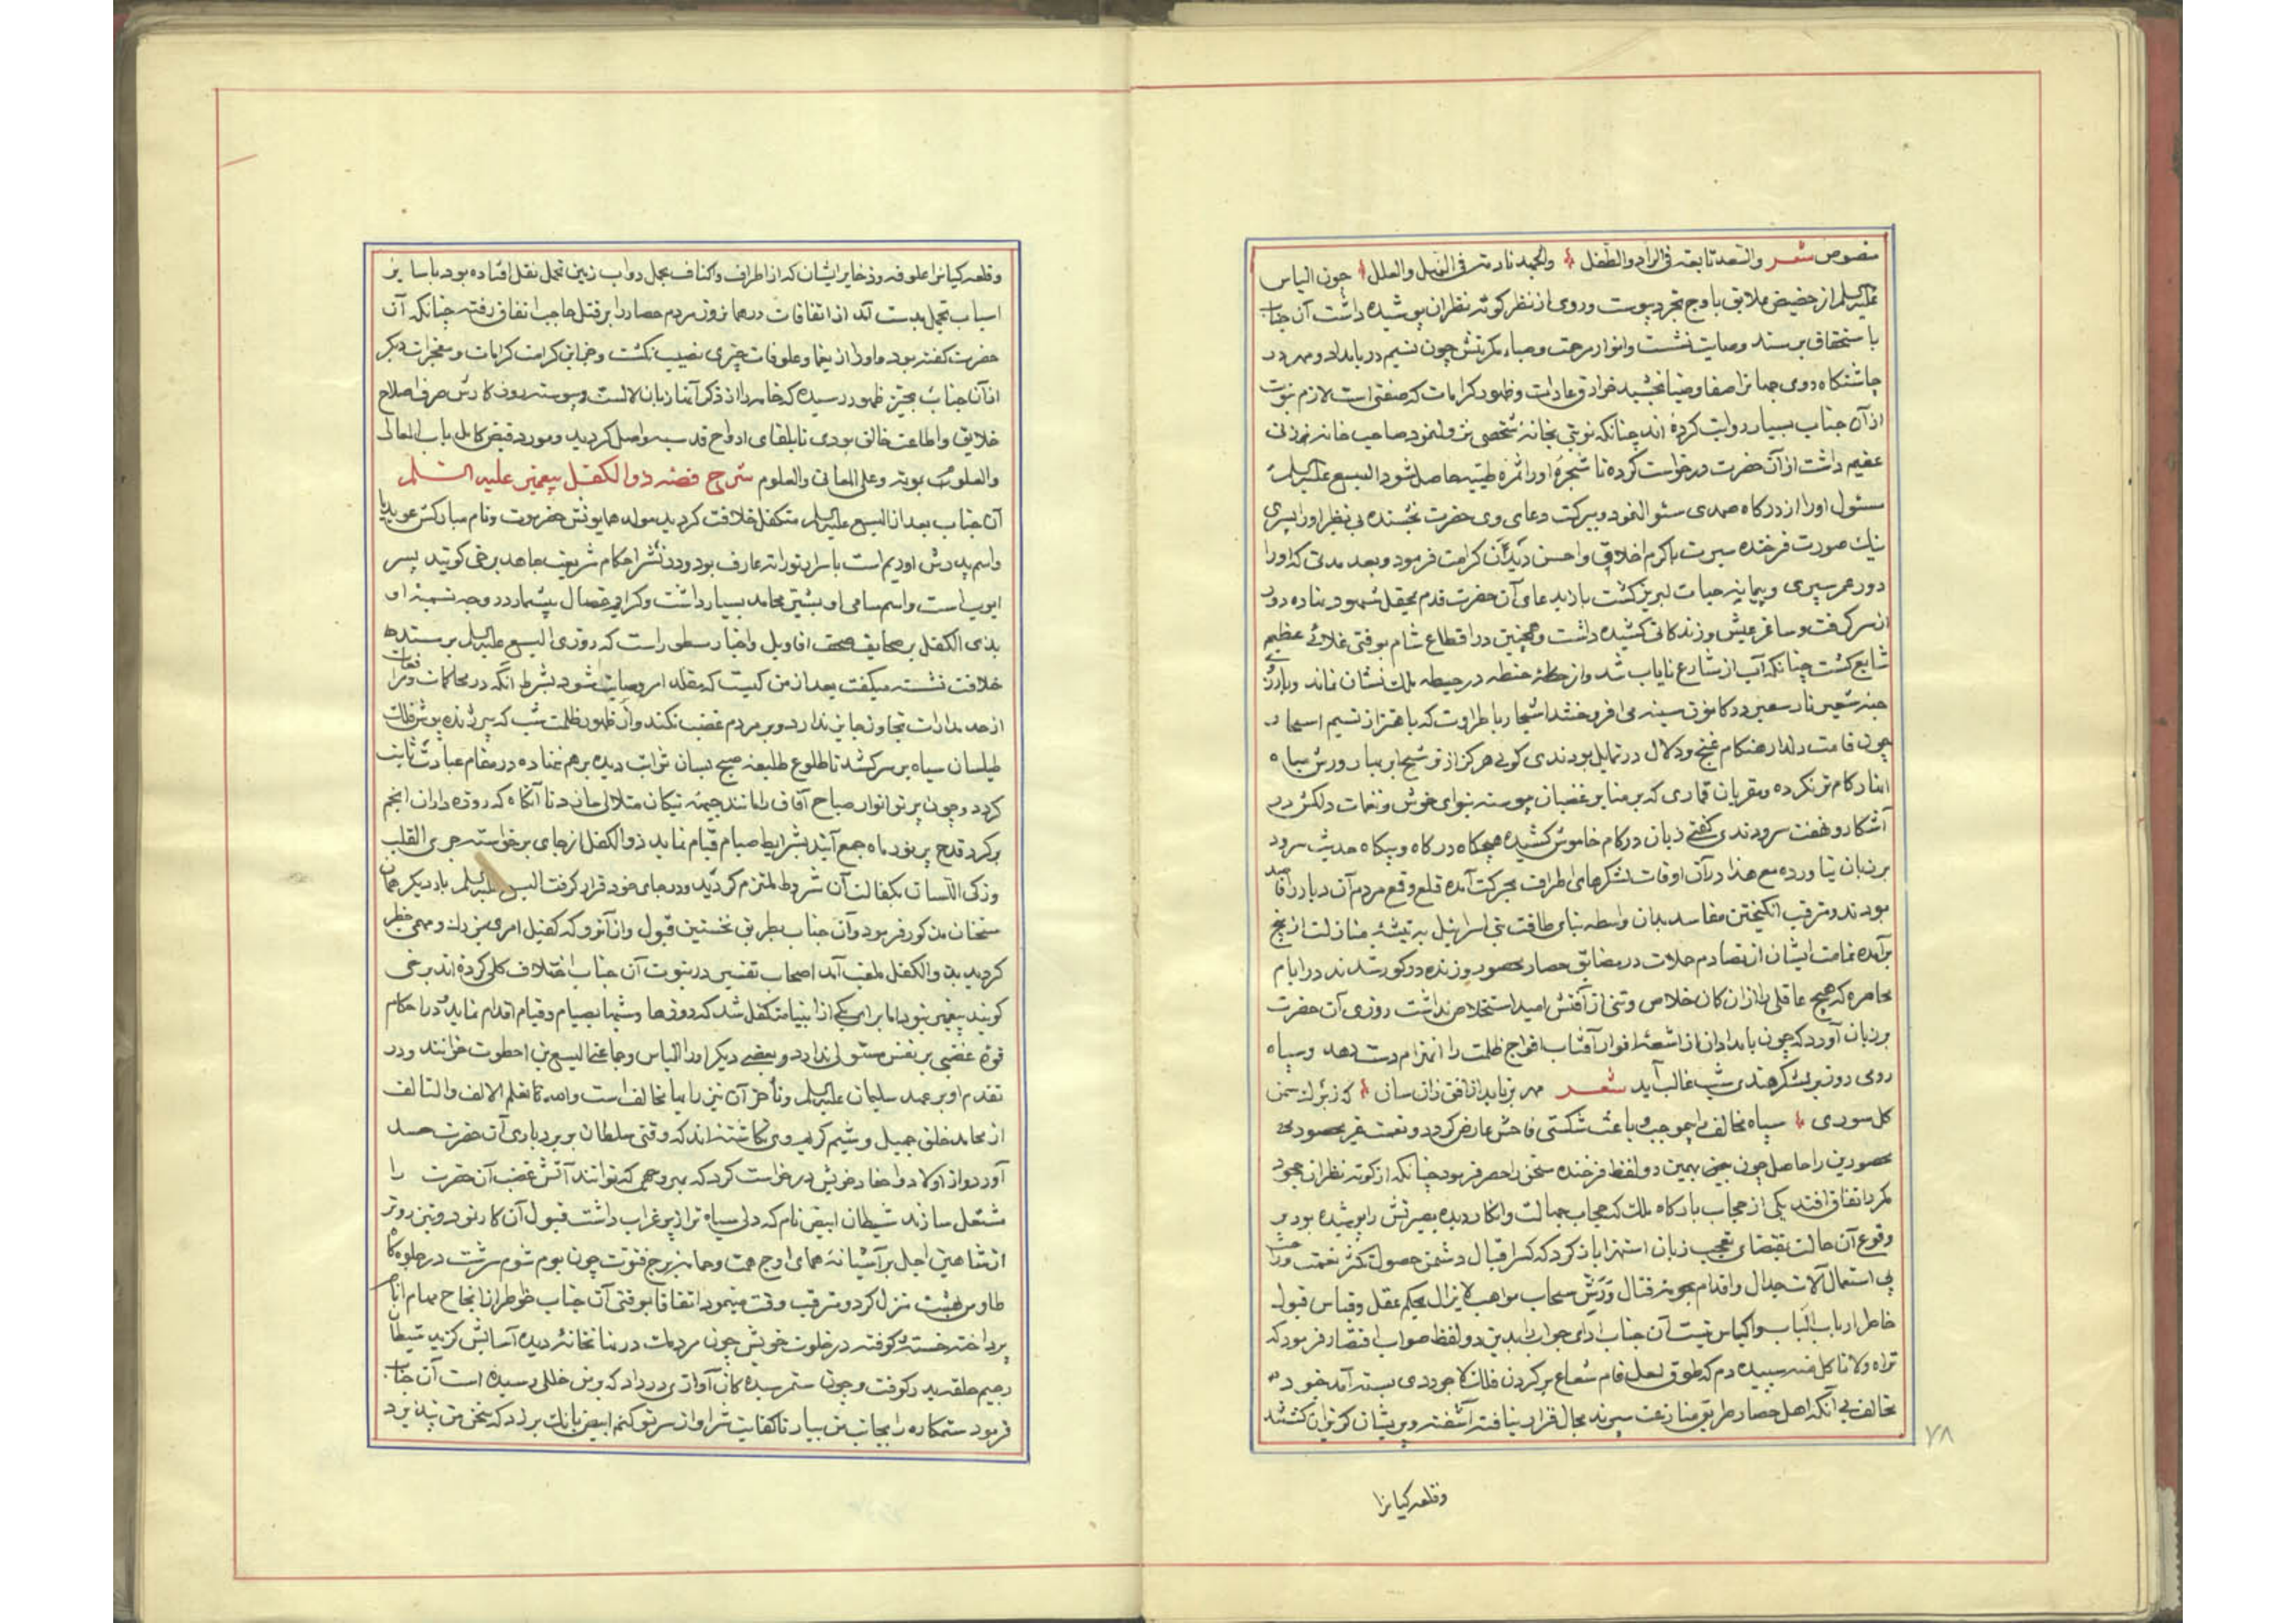 منصوص شعر والسعد تابعه فی الراد والطفل والحمد نادته فی النهل والعلل چون الیاس
علیه السلم از حضیض علایق باوج تجرد پیوست و روی از نظر کوته نظران پوشیده داشت آن جناب
باستحقاق بر مسند وصایت نشست و انوار مرحمت و صباء مکرمتش چون نسیم در بامداد و مهر در
چاشتگاه روی جهانرا صفا و ضیا بخشید خوارق عادات و ظهور کرامات که صفتی است لازم نبوت
از آن جناب بسیار روایت کرده اند چنانکه نوبتی بخانه شخصی نزول نمود صاحب خانه زنی
عقیم داشت از آن حضرت درخواست کرده تا شجره اورا ثمره طیبه حاصل شود الیسع علیه السلم
مسئول اورا از درگاه صمدی سئوال نمود و ببرکت دعای وی حضرت بخشنده بی نظیر اورا پسری
نیک صورت فرخنده سیرت باکرم اخلاق و احسن کرامت فرمود و بعد مدتی که اورا
دور عمر سپری و پیمانه حیات لبریز گشت باز بدعای آن حضرت قدم بحقل شهود نهاده دور
از سر گرفت و ساغر عیش و زندگانی کشیده داشت و همچنین در اقطاع شام بوقتی غلائی عظیم
شایع گشت چنانکه آب از شارع نایاب شد و از حنطه در حیطه ملک نشان نماند
حبه شعیر نار سعیر در کانون سینه می افروخت اشجار با طراوت که باهتزاز نسیم اسحار
چون قامت دلدار هنگام غنج و دلال در تمایل بودندی گویی هرگز از ترشیح ابر بهار و رش میاه
انهار کام تر نکرده و مقریان قماری که بر منابر غضبان پیوسته بنوای خوش و نغمات دلکش در
آشکار و نهفت سرودندی گفتی زبان در کام خاموش کشیده هیچگاه در گاه و بیگاه حدیث سرود
بر زبان نیاورده مع هذا در آن اوقات لشکرهای اطراف بحرکت آمده قلع و قمع مردم آن دیار را قاصد
بودند و مترقب انگیختن مفاسد بدان واسطه بنای طاقت بنی اسرائیل به تیشه منازلت از بیخ
برآمده تمامت ایشان از تصادم حملات در مضایق حصار محصور و زنده در گور شدند در ایام
محاصره که هیچ عاقلی را از ان کان خلاص و تنی از آتش امید استخلاص نداشت روزی آن حضرت
بر زبان آورد که چون بامدادان از اشعه انوار آفتاب افواج ظلمت را انهزام دست دهد و سپاه
رومی روز بر لشکر هندی شب غالب آید شعر مهر بزیابد از افق زان سان که ز بر سمن
گل سوری سپاه مخالف را بی موجب و باعث شکستی فاحش عارض گردد و نعمت غیر محصور
محصورین را حاصل چون بهمین دو لفظ فرخنده سخن را حصر فرمود چنانکه از کوته نظران محجوب
گمراه اتفاق افتد یکی از حجاب بارگاه ملک که حجاب جهالت و انکار دیده بصیرتش را پوشیده بود بر
وقوع آن حالت بمقتضای تعجب زبان استهزا باز کرد که کسر اقبال دشمن و حصول کثر نعمت و
بی استعمال آلات جدال و اقدام بجوی قتال و رش سحاب مواهب لایزال بحکم عقل و قیاس قبول
خاطر ارباب الباب و اکیاس نیست آن جناب ادای جواب را بدین دو لفظ صواب اختصار فرمود که
تراه ولا تاکل منه سپیده دم که طوق لعل فام شعاع بر گردن فلک لاجوردی بسته آمد جنود
مخالف بی آنکه اهل حصار طریق منازعت سپرند مجال قرار نیافته آشفته و پریشان گریزان گشتند
۷۸
وقلعه کیانرا
وقلعه کیانرا علوفه و ذخایر ایشان که از اطراف و اکناف بحمل دواب زمین تحمل نقل افتاده بود با سایر
اسباب تجمل بدست آمد از اتفاقات در همانروز مردم حصار را بر قتل حاجب اتفاق رفته چنانکه آن
حضرت گفته بود ماورا از یغما و علوفات چیزی نصیب نگشت و جز این کرامت کرامات و معجزات دیگر
از آن جناب بحیز ظهور رسیده که خامه را از ذکر آنها زبان لالست و پیوسته روزگارش صرف اصلاح
خلایق و اطاعت خالق بودی تا بلقای ارواح قدسیه واصل گردید و مورد فیض کامل باب المعالی
والعلوب بموته وعلی المعانی والعلوم شرح قصه ذوالکفل پیغمبر علیه السلم
آن جناب بعد از الیسع علیه السلم متکفل خلافت گردید مولد همایونش حضرموت و نام مبارکش عویدیا
واسم پدرش ادریم است باسرار تورات عارف بود و در نشر احکام شریعت جاهد برخی گویند پسر
ایوب است و اسم سامی او بشیر محامد بسیار داشت و کرایم خصال بیشمار در وجه تسمیه او
بذی الکفل بر صحایف صحف اقاویل و اخبار مسطور است که روزی الیسع علیه السلم بر مسند
خلافت نشسته میگفت بعد از من کیست که مقلد امر وصایت شود بشرط آنکه در محاکمات و مرافعات
از حد مدارات تجاوز جایز ندارد و بر مردم غضب نکند و از ظهور ظلمت شب که پیر ژنده پوش فلک
طیلسان سیاه بر سر کشد تا طلوع طلیعه صبح بسان ثوابت دیده برهم ننهاده در مقام عبادت ثابت
گردد و چون پرتو انوار صباح آفاق را مانند جبهه نیکان متلالی سازد تا آنگاه که روزه داران انجم
بر گرد قدح پر نور ماه جمع آیند بشرایط صیام قیام نماید ذوالکفل از جای برخواسته جری القلب
وزکی اللسان بکفالت آن شروط ملتزم گردید و در جای خود قرار گرفت الیسع علیه السلم بار دیگر همان
سخنان مذکور فرمود و آن جناب بطریق نخستین قبول و از آنرو که کفیل امری بزرگ و مهمی خطیر
گردید بذوالکفل ملقب آمد اصحاب تفسیر در نبوت آن جناب اختلاف کلی کرده اند برخی
گویند پیغمبر نبود اما برای یکی از انبیا متکفل شد که روزها و شبها بصیام و قیام اقدام نماید و در احکام
قوه غضبی بر نفس مستولی ندارد و بعضی دیگر اورا الیاس و جماعتی الیسع بن اخطوب خوانند و در
تقدم او بر عهد سلیمان علیه السلم و تأخر آن نیز رایها مخالف است والله تعالی اعلم الالف والتالف
از محامد خلق جمیل و شیم کریم وی نگاشته اند که وقتی سلطان بر بردباری آن حضرت حسد
آورد و از اولاد و احفاد خویش درخواست کرد که بهر وجهی که توانند آتش غضب آن حضرت را
مشتعل سازند شیطان ابیض نام که دلی سیاه تر از پر غراب داشت قبول آن کار نمود و تیز رو تر
از شاهین اجل بر آشیانه همای اوج همت و حمامه برج فتوت چون بوم شوم سرشت در جلوه گاه
طاوس بهشت منزل کرد و مترقب وقت میبود اتفاقا بوقتی آن جناب خواطر از انجاح مهام انام
پرداخته خسته و کوفته در خلوت خویش چون مردمک در نهانخانه دیده آسایش گزید شیطان
رجیم حلقه بدر کوفت و چون ستم رسیده گان آوازی در داد که بر من خللی رسیده است آن جناب
فرمود ستمکاره را بجانب من بیار تا کفایت شر او از سر تو کنم ابیض بانگ بر زد که سخن من نپذیرد